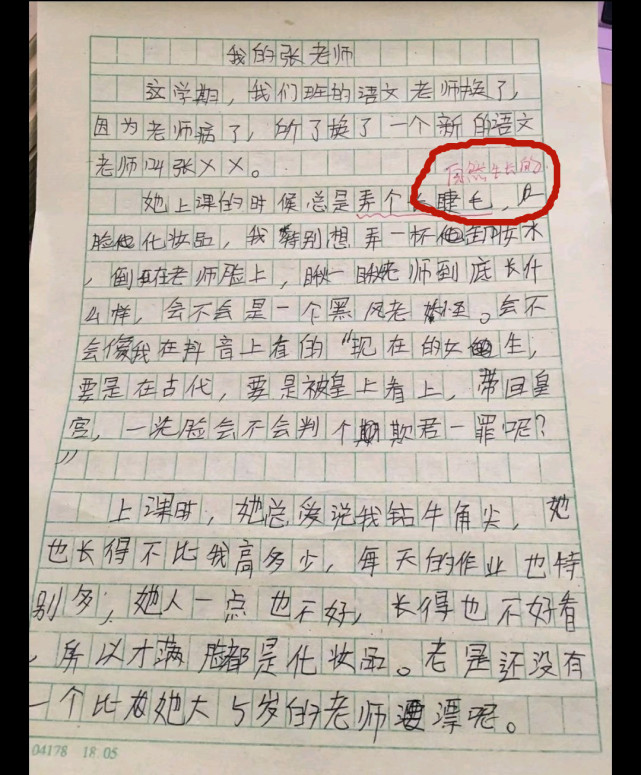 我的张老师
这学期，我们班的语文老师换了，
因为老师病了，所了换了一个新的语文
老师叫张××。
自然生长的
她上课的时候总是弄个长睫毛，一
脸化妆品，我特别想弄一杯卸妆水
，倒在老师脸上，瞅一瞅老师到底长什
么样，会不会是一个黑风老妖怪。会不
会像我在抖音上看的“现在的女生，
要是在古代，要是被皇上看上，带回皇
宫，一洗脸会不会判个欺君一罪呢？
”
上课时，她总爱说我钻牛角尖，她
也长得不比我高多少，每天的作业也特
别多，她人一点也不好，长得也不好看
，所以才满脸都是化妆品。老是还没有
一个比她大5岁的老师漂呢。
04178 18.05